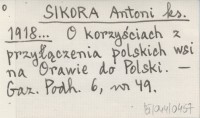 SIKORA Antoni ks.
1918... O korzyściach z
przyłączenia polskich wsi
na Orawie do Polski. —
Gaz. Podh. 6, nr 49.